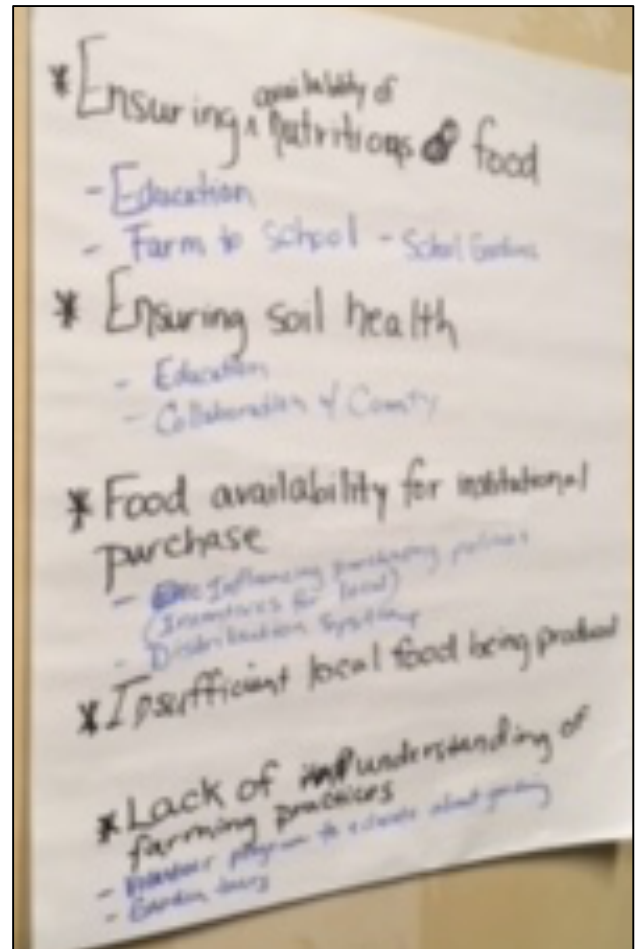 * Ensuring ^ availability of nutritious food
- Education
- Farm to School - School Gardens
* Ensuring soil health
- Education
- Collaboration w/ County
* Food availability for institutional
purchase
- Influencing purchasing policies
(Incentives for local)
- Distribution Systems
* Insufficient local food being produced
* Lack of understanding of
farming practices
- program to educate about
- Garden